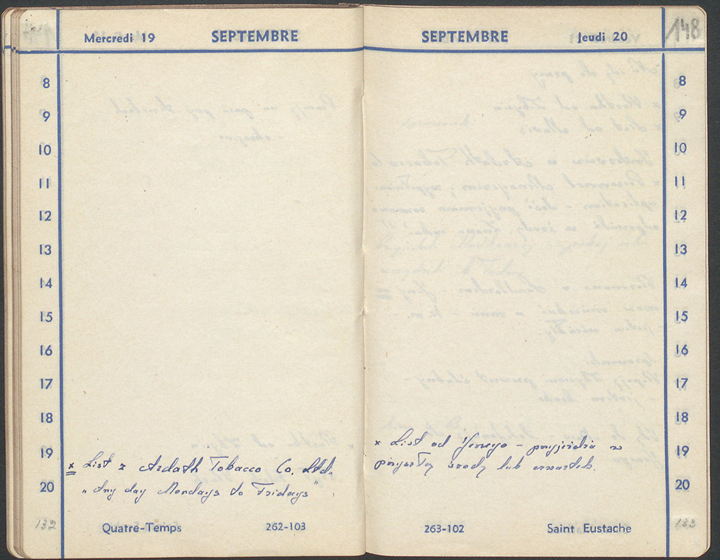 Mercredi 19 SEPTEMBRE
8
9
10
11
12
13
14
15
16
17
18
19
20
x List z Ardath Tobacco Co. Ltd.
"Any day Mondays to Fridays"
132 Quatre-Temps 262-103
SEPTEMBRE Jeudi 20 148
8
9
10
11
12
13
14
15
16
17
18
19
20
x List od Jerzego - przyjeżdża w
przyszłą środę lub czwartek.
263-102 Saint Eustache 133